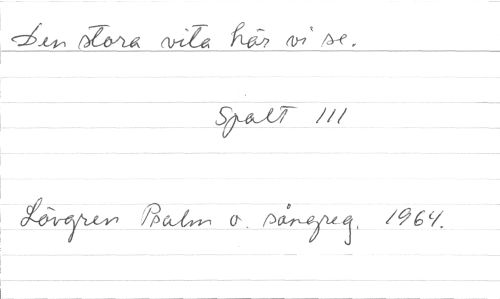 Den stora vita här vi se.
Spalt 111
Lövgren Psalm o. sångreg. 1964.